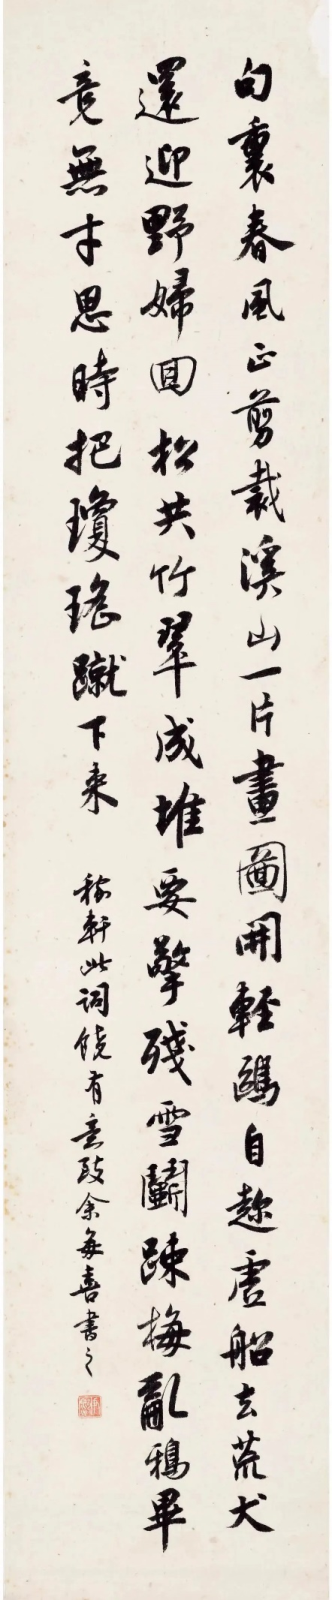 句裏春風正剪裁溪山一片畫圖開輕鷗自趁虛船去荒犬
還迎野婦回松共竹翠成堆要擎殘雪鬭疎梅亂鴉畢
竟無才思時把瓊瑤蹴下來
稼軒此詞饒有意致余每喜書之